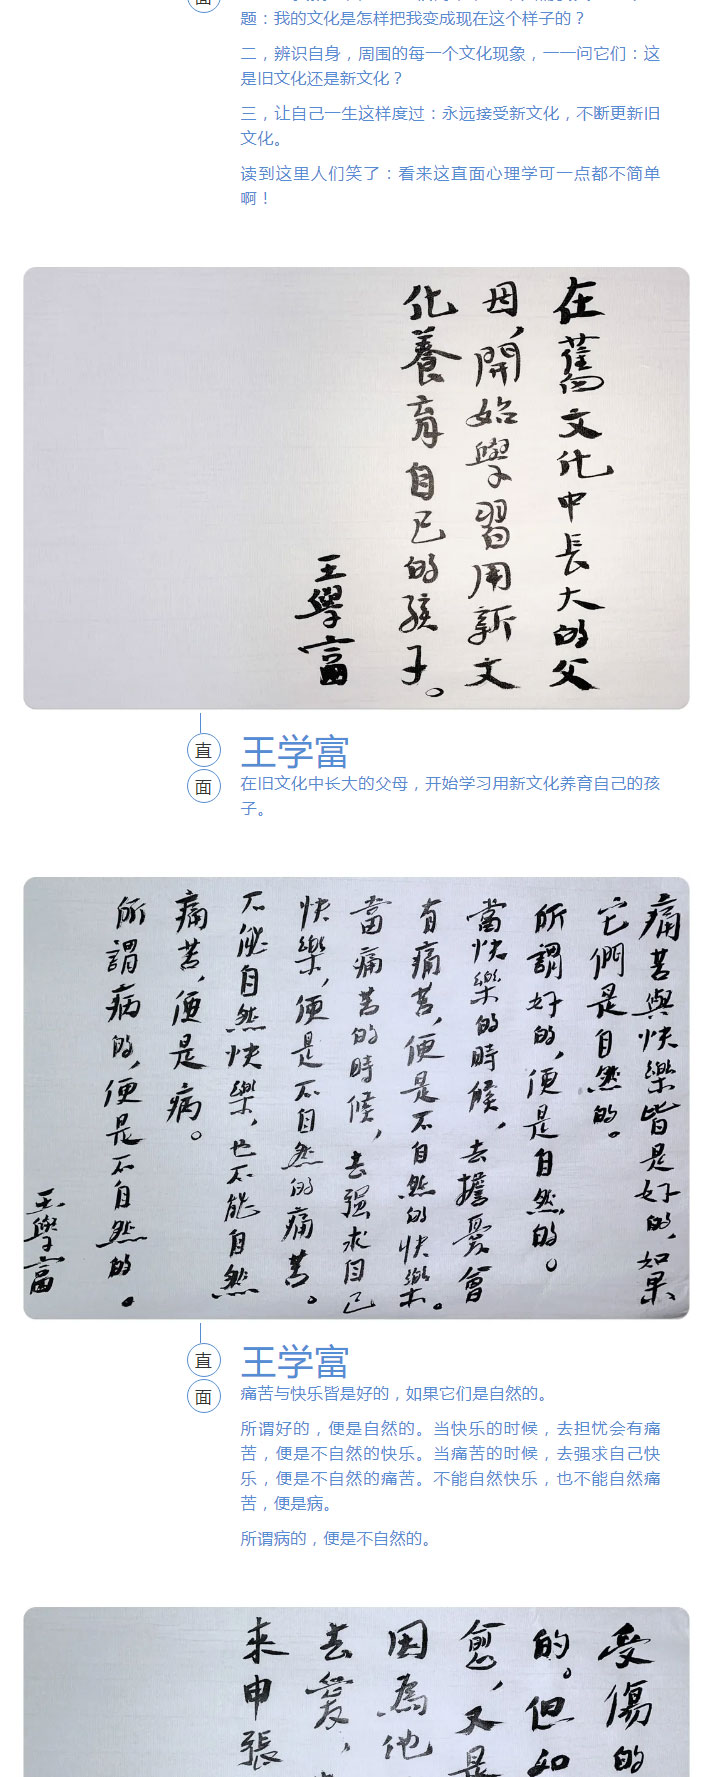 面
题：我的文化是怎样把我变成现在这个样子的？
二，辨识自身，周围的每一个文化现象，一一问它们：这
是旧文化还是新文化？
三，让自己一生这样度过：永远接受新文化，不断更新旧
文化。
读到这里人们笑了：看来这直面心理学可一点都不简单
啊！
在舊文化中長大的父
母，開始學習用新文
化養育自己的孩子。
王學富
直
面
王学富
在旧文化中长大的父母，开始学习用新文化养育自己的孩
子。
痛苦與快樂皆是好的，如果
它們是自然的。
所謂好的，便是自然的。
當快樂的時候，去擔憂會
有痛苦，便是不自然的快樂。
當痛苦的時候，去强求自己
快樂，便是不自然的痛苦。
不能自然快樂，也不能自然
痛苦，便是病。
所謂病的，便是不自然的。
王學富
直
面
王学富
痛苦与快乐皆是好的，如果它们是自然的。
所谓好的，便是自然的。当快乐的时候，去担忧会有痛
苦，便是不自然的快乐。当痛苦的时候，去强求自己快
乐，便是不自然的痛苦。不能自然快乐，也不能自然痛
苦，便是病。
所谓病的，便是不自然的。
受傷的
的。但如
愈，又是
因為他
去愛，
來申張